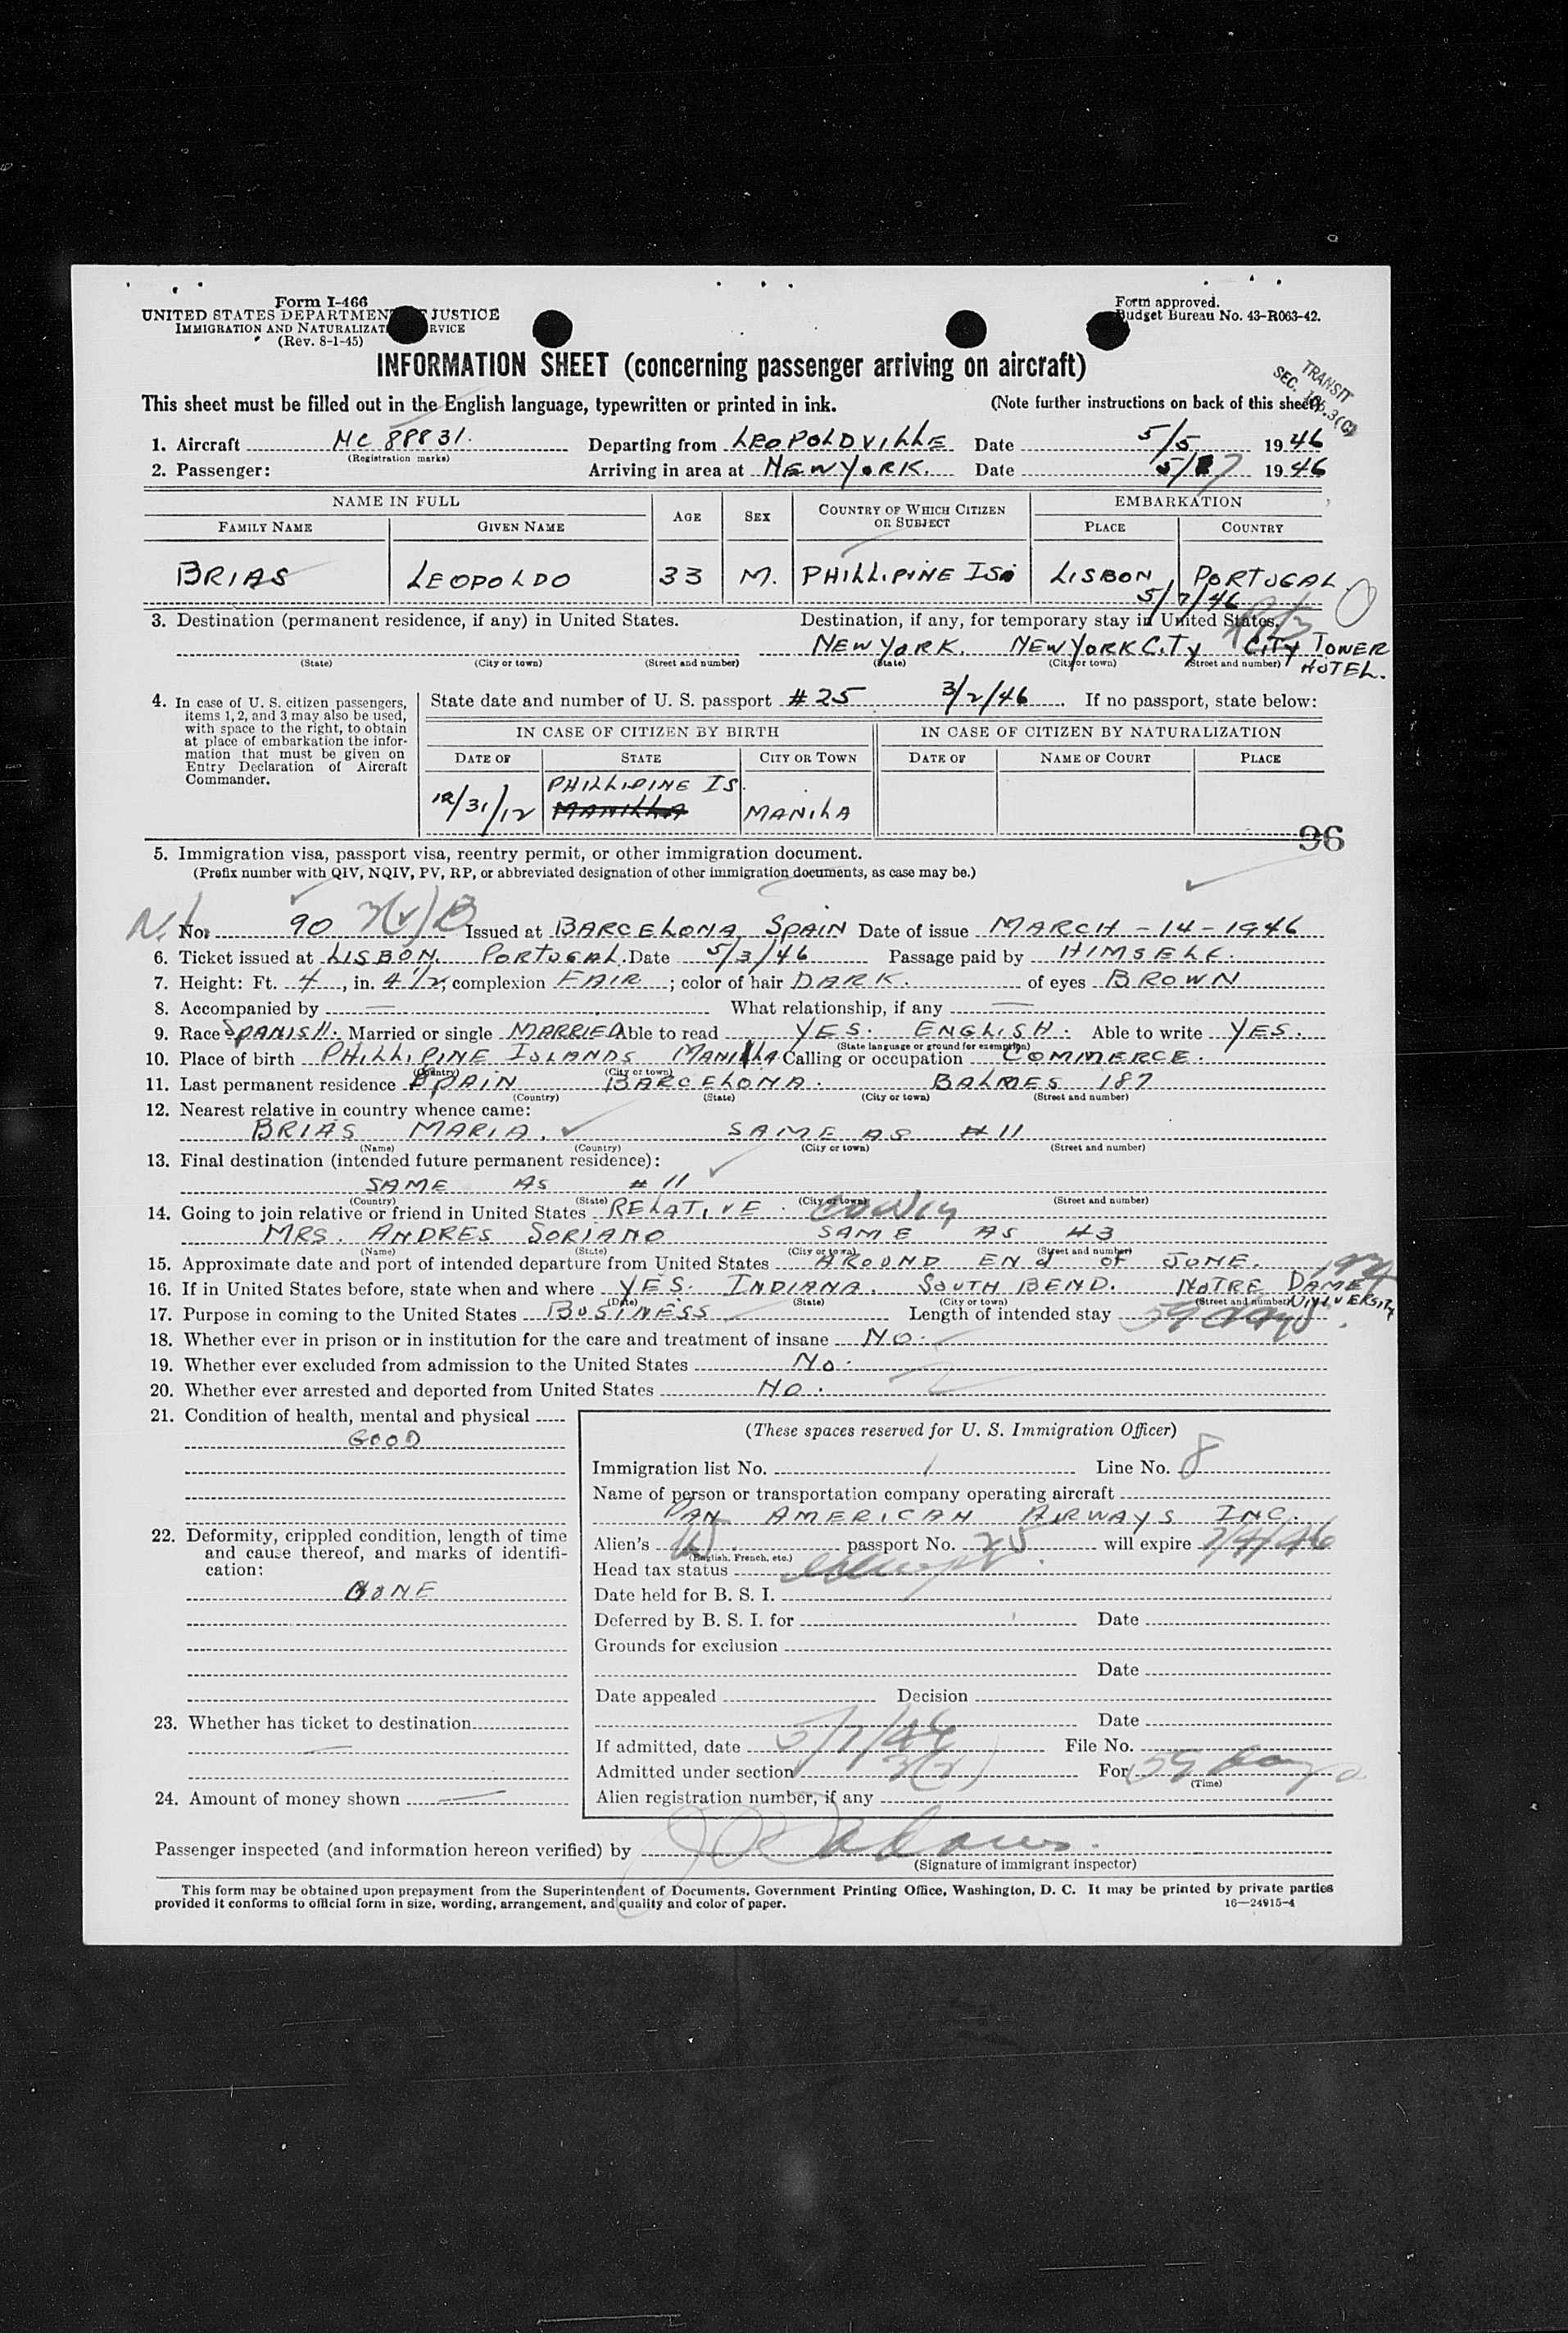 Form I-466
UNITED STATES DEPARTMENT OF JUSTICE
IMMIGRATION AND NATURALIZATION SERVICE
(Rev. 8-1-45)
Form approved.
Budget Bureau No. 43-R063-42.
INFORMATION SHEET (concerning passenger arriving on aircraft)
TRANSIT
SEC.
This sheet must be filled out in the English language, typewritten or printed in ink. (Note further instructions on back of this sheet)
1. Aircraft NC 88831. Departing from LEOPOLDVILLE Date 5/5 1946
(Registration marks)
2. Passenger: Arriving in area at NEW YORK. Date 5/7 1946
NAME IN FULL AGE SEX COUNTRY OF WHICH CITIZEN OR SUBJECT EMBARKATION
FAMILY NAME GIVEN NAME PLACE COUNTRY
BRIAS LEOPOLDO 33 M. PHILLIPINE IS. LISBON PORTUGAL
5/7/46
3. Destination (permanent residence, if any) in United States. Destination, if any, for temporary stay in United States.
NEW YORK. NEW YORK CITY CITY TOWER
(State) (City or town) (Street and number) (State) (City or town) (Street and number) HOTEL.
4. In case of U. S. citizen passengers, items 1, 2, and 3 may also be used, with space to the right, to obtain at place of embarkation the information that must be given on Entry Declaration of Aircraft Commander.
State date and number of U. S. passport #25 3/2/46. If no passport, state below:
IN CASE OF CITIZEN BY BIRTH IN CASE OF CITIZEN BY NATURALIZATION
DATE OF STATE CITY OR TOWN DATE OF NAME OF COURT PLACE
PHILLIPINE IS.
12/31/12 MANILLA MANILA
96
5. Immigration visa, passport visa, reentry permit, or other immigration document.
(Prefix number with QIV, NQIV, PV, RP, or abbreviated designation of other immigration documents, as case may be.)
No. 90 Issued at BARCELONA SPAIN Date of issue MARCH - 14 - 1946
6. Ticket issued at LISBON. PORTUGAL. Date 5/3/46 Passage paid by HIMSELF.
7. Height: Ft. 4, in. 4 1/2; complexion FAIR; color of hair DARK. of eyes BROWN
8. Accompanied by — What relationship, if any —
9. Race SPANISH. Married or single MARRIED Able to read YES. ENGLISH. Able to write YES.
(State language or ground for exemption)
10. Place of birth PHILLIPINE ISLANDS MANILLA Calling or occupation COMMERCE.
(Country) (City or town)
11. Last permanent residence SPAIN BARCELONA. BALMES 187
(Country) (State) (City or town) (Street and number)
12. Nearest relative in country whence came:
BRIAS MARIA. SAME AS #11
(Name) (Country) (City or town) (Street and number)
13. Final destination (intended future permanent residence):
SAME AS #11
(Country) (State) (City or town) (Street and number)
14. Going to join relative or friend in United States RELATIVE.
MRS. ANDRES SORIANO SAME AS #3
(Name) (State) (City or town) (Street and number)
15. Approximate date and port of intended departure from United States AROUND END OF JUNE.
16. If in United States before, state when and where YES. INDIANA. SOUTH BEND. NOTRE DAME UNIVERSITY.
(Date) (State) (City or town) (Street and number)
17. Purpose in coming to the United States BUSINESS Length of intended stay 59 days
18. Whether ever in prison or in institution for the care and treatment of insane NO.
19. Whether ever excluded from admission to the United States NO.
20. Whether ever arrested and deported from United States NO.
21. Condition of health, mental and physical
GOOD
22. Deformity, crippled condition, length of time and cause thereof, and marks of identification:
NONE
23. Whether has ticket to destination
—
24. Amount of money shown —
(These spaces reserved for U. S. Immigration Officer)
Immigration list No. 1 Line No. 8
Name of person or transportation company operating aircraft
PAN AMERICAN AIRWAYS INC.
Alien's passport No. 25 will expire
(English, French, etc.)
Head tax status exempt
Date held for B. S. I.
Deferred by B. S. I. for Date
Grounds for exclusion
Date
Date appealed Decision
Date
If admitted, date 5/7/46 File No.
Admitted under section 3(2) For 59 days
(Time)
Alien registration number, if any
Passenger inspected (and information hereon verified) by
(Signature of immigrant inspector)
This form may be obtained upon prepayment from the Superintendent of Documents, Government Printing Office, Washington, D. C. It may be printed by private parties
provided it conforms to official form in size, wording, arrangement, and quality and color of paper. 16—24915-4